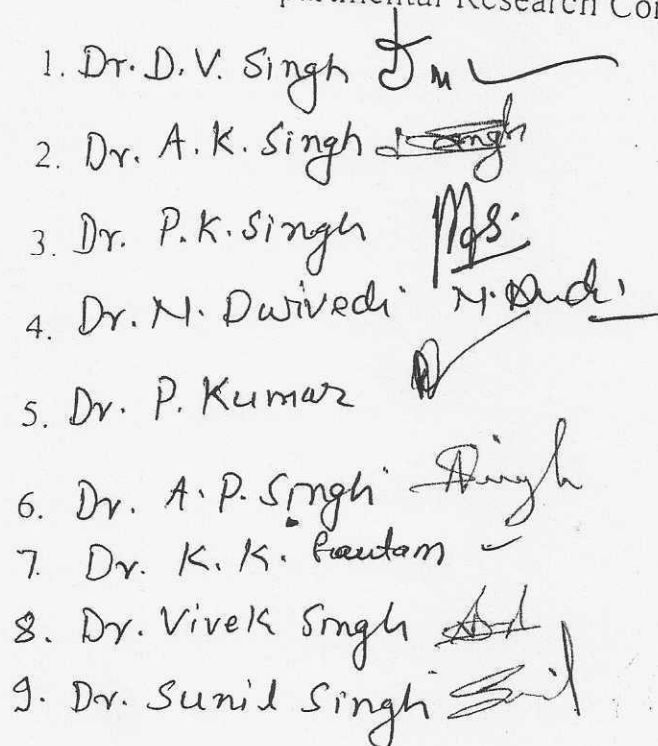 partmental Research Con
1. Dr. D.V. Singh
2. Dr. A.K. Singh Singh
3. Dr. P.K. Singh
4. Dr. N. Dwivedi
5. Dr. P. Kumar
6. Dr. A.P. Singh Singh
7. Dr. K.K. Gautam
8. Dr. Vivek Singh
9. Dr. Sunil Singh Sunil